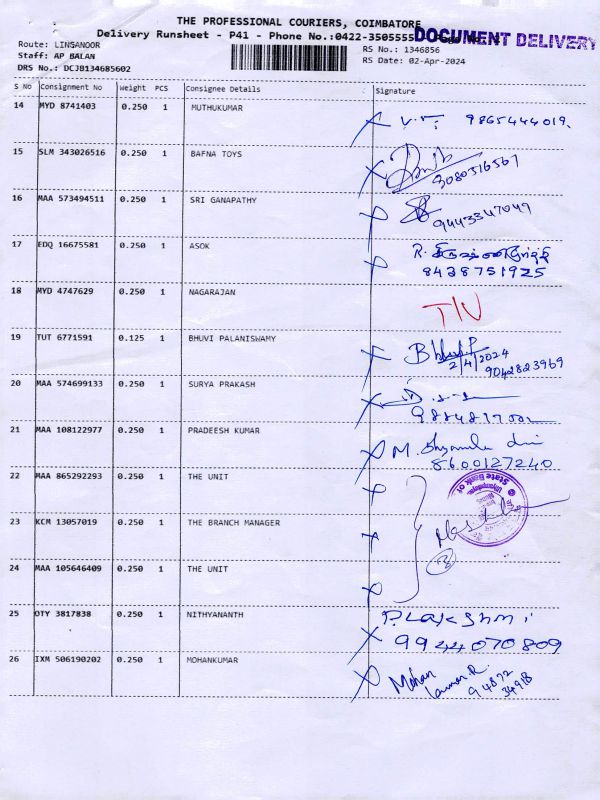 THE PROFESSIONAL COURIERS, COIMBATORE
Delivery Runsheet - P41 - Phone No.:0422-3505555
DOCUMENT DELIVERY
Route: LINSANOOR
RS No.: 1346856
Staff: AP BALAN
RS Date: 02-Apr-2024
DRS No.: DCJB134685602
S No Consignment No Weight PCS Consignee Details Signature
14 MYD 8741403 0.250 1 MUTHUKUMAR
9865444019.
15 SLM 343026516 0.250 1 BAFNA TOYS
9080316567
16 MAA 573494511 0.250 1 SRI GANAPATHY
9443347049
17 EDQ 16675581 0.250 1 ASOK
R.
8428751925
18 MYD 4747629 0.250 1 NAGARAJAN
19 TUT 6771591 0.125 1 BHUVI PALANISWAMY
2/4/2024
9042823969
20 MAA 574699133 0.250 1 SURYA PRAKASH
21 MAA 108122977 0.250 1 PRADEESH KUMAR
M. Shyamala
8600127240
22 MAA 865292293 0.250 1 THE UNIT
State Bank of
23 KCM 13057019 0.250 1 THE BRANCH MANAGER
24 MAA 105646409 0.250 1 THE UNIT
25 OTY 3817838 0.250 1 NITHYANANTH
P. Lakshmi
9944070809
26 IXM 506190202 0.250 1 MOHANKUMAR
Mohan
kumar.R.
94872
34918